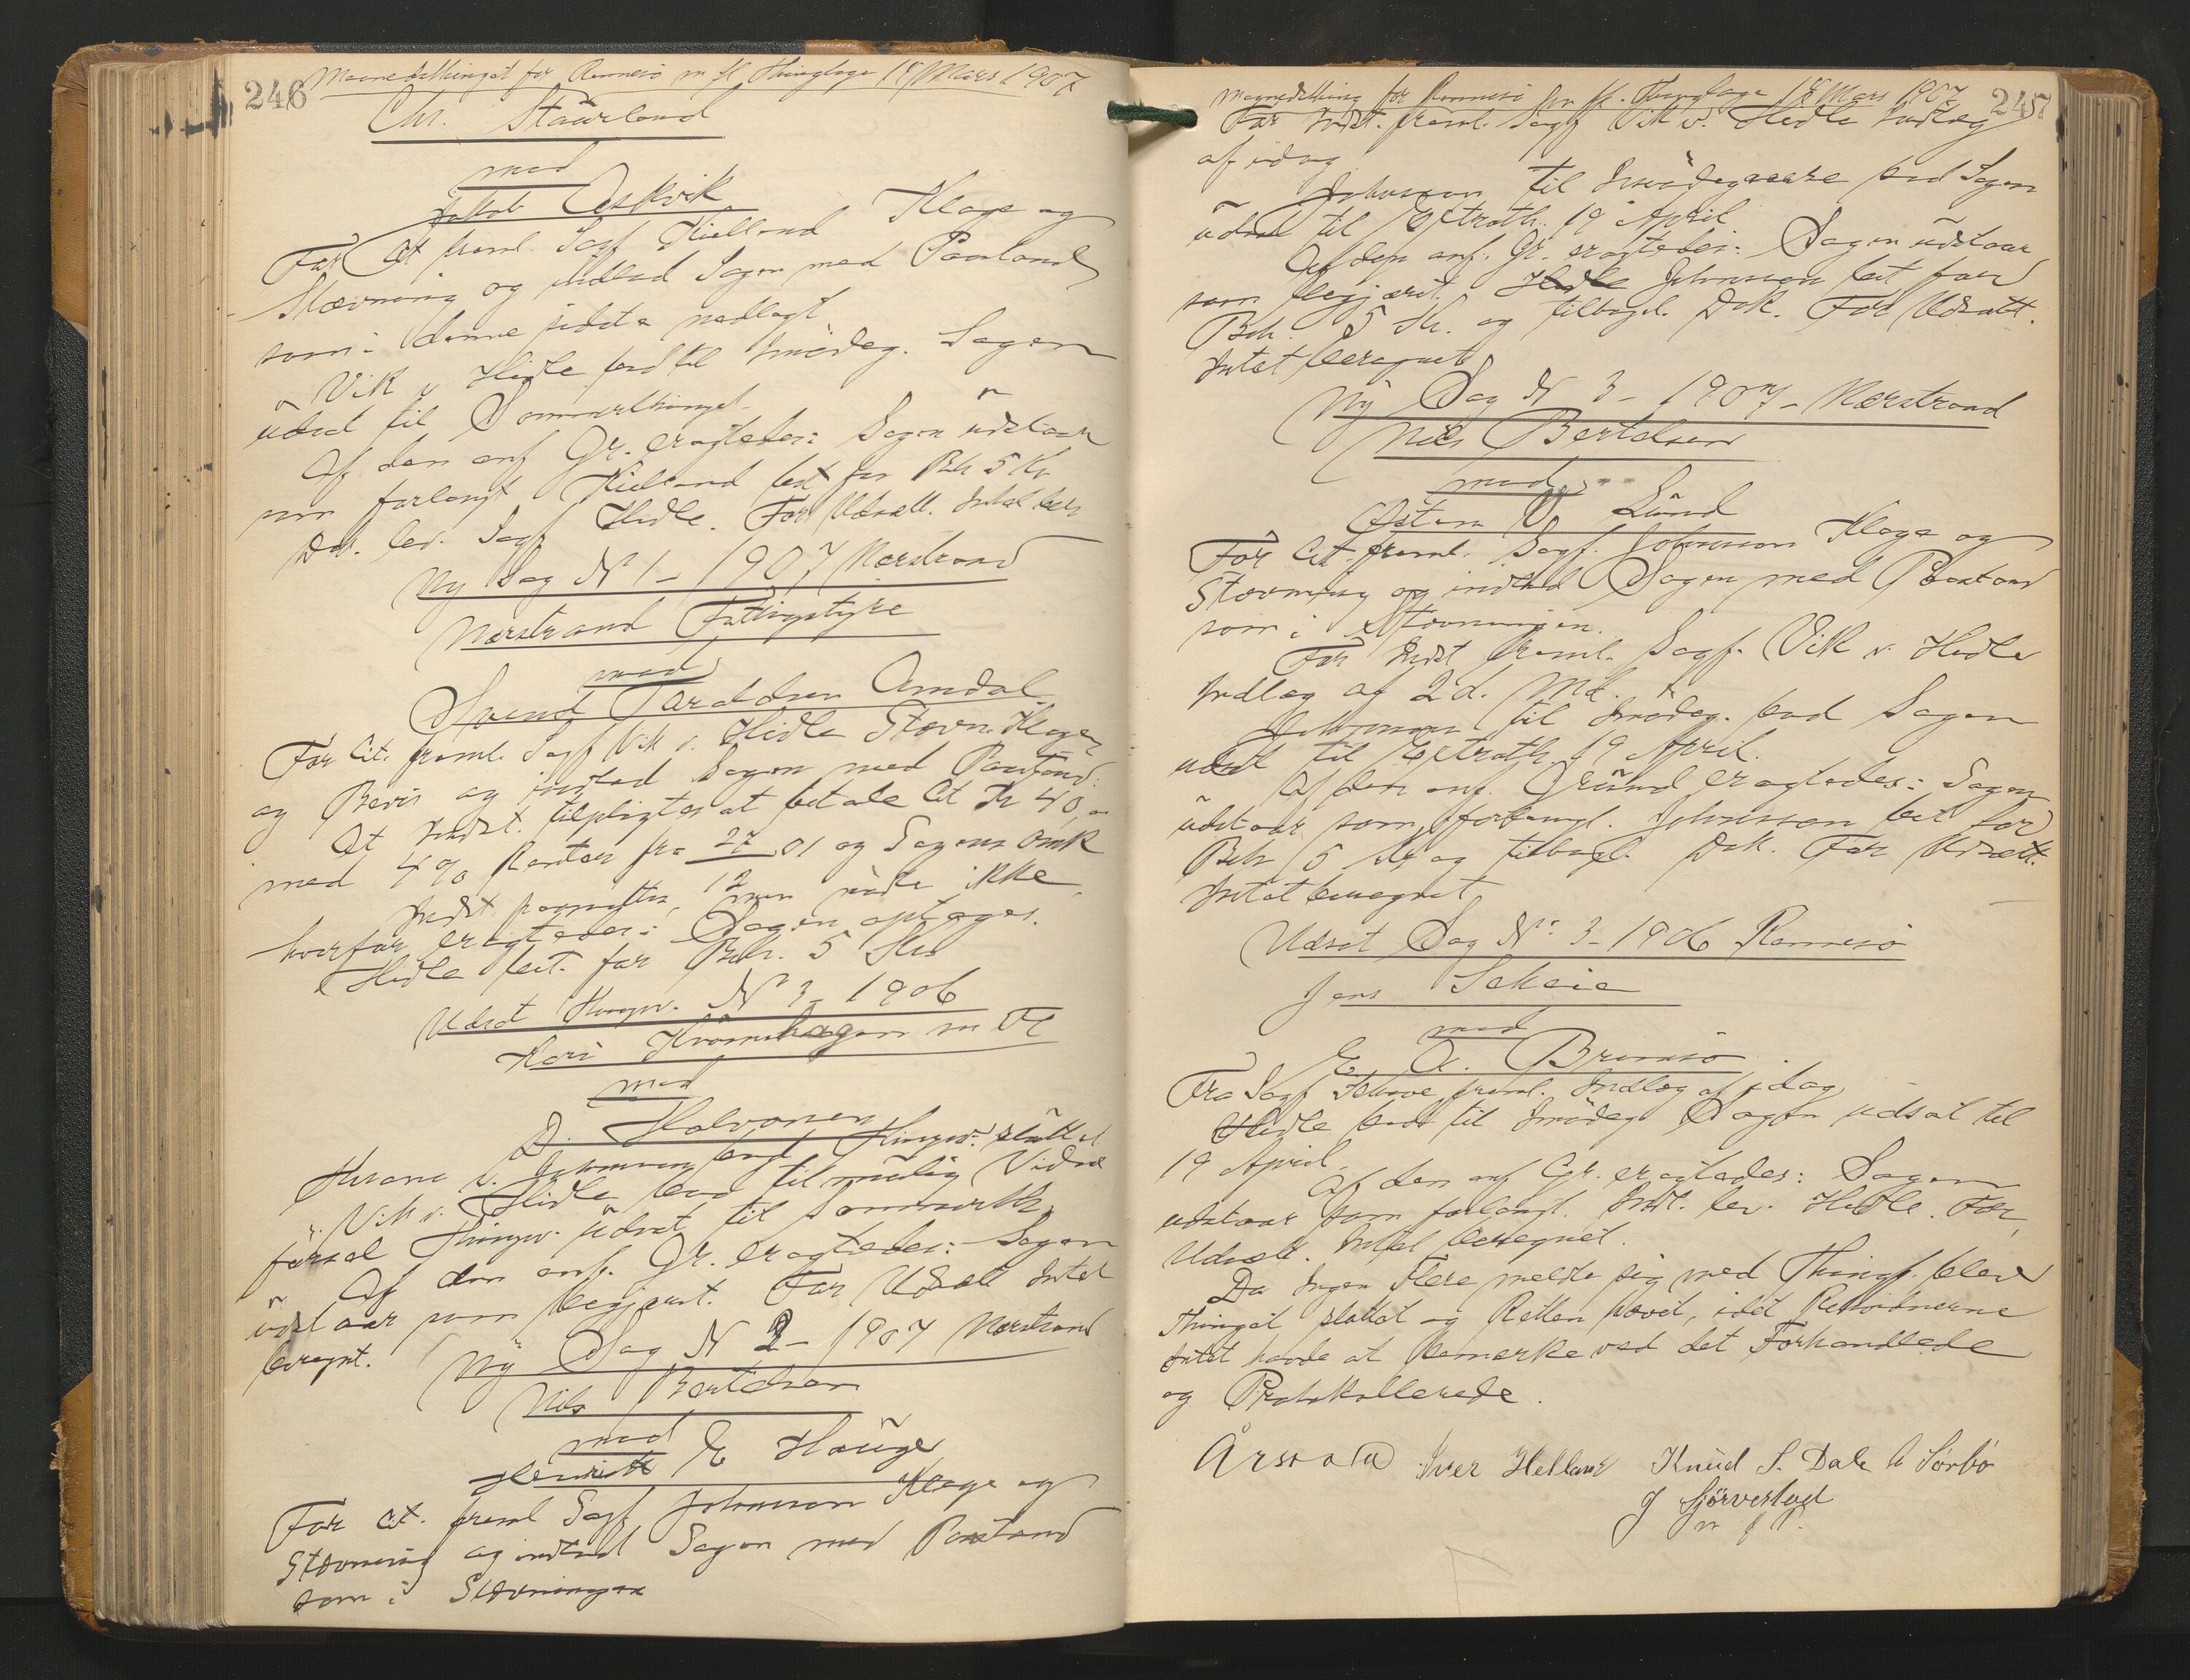 246
Maanedsthinget for Rennesø m fl Thinglage 18 Mars 1907
Chr. Staurland
mod
Jakob Askvik
For Cit freml. Sagf Kielland Klage og
Stævning og indlod Sagen med Paastand
som i denne sidste nedlagt
Vik v Hidle bad til Imødeg. Sagen
udsat til Sommerthinget.
Af den anf Gr. eragtedes: Sagen udstaar
som forlangt Kielland bet for Beh 5 Kr
Dok. lev. Sagf Hidle. For Udsætt. Intet ber
Ny Sag N 1 - 1907 Nerstrand
Nerstrand Fattigstyre
mod
Svend Taraldsen Amdal
For Cit. freml. Sagf Vik v. Hidle Stævn. Klage
og Bevis og indlod Sagen med Paastand:
At Indst. tilpligtes at betale Cit Kr 40,
med 4% Renter fra 27/12 01 og Sagens Omk
Indst paaraabtes, men mødte ikke,
hvorfor eragtedes: Sagen optages.
Hidle bet. for Beh. 5 Kr
Udsat Thingv. N 3 - 1906
Kari Kvamshagen m Fl
mod
D. Halvorsen
v. Johnson bad Thingv. sluttet
Vik v. Hidle bad til mulig Vidne
førsel Thingv. udsat til Sommerth.
Af den anf. Gr. eragtedes: Sagen
udstaar som begjært. For Udsætt Intet
beregnt.
Ny Sag N 2 - 1907 Nerstrand
Nils Bertelsen
mod
Henrik E Hauge
For Cit. freml Sagf Johnson Klage og
Stævning og indlod Sagen med Paastand
som i Stævningen
247
Maanedsthing for Rennesø m fl. Thinglage 18 Mars 1907
For Indst. freml. Sagf Vik v. Hidle Indlæg
af idag
Johnson til Imødegaaelse bad Sagen
udsat til Extrath. 19 April
Af den anf. Gr. eragtedes: Sagen udstaar
som begjæret. Hidle Johnson bet for
Beh. 5 Kr. og tilbagel. Dok. For Udsætt.
Intet beregnet
Ny Sag N 3 - 1907 - Nerstrand
Nils Bertelsen
mod
Østen V Lund
For Cit. freml. Sagf. Johnson Klage og
Stævning og indlod Sagen med Paastand
som i Stævningen.
For Indst freml. Sagf. Vik v. Hidle
Indlæg af 2 d. Md.
Johnson til Imødeg. bad Sagen
udsat til Extrath. 19 April.
Af den anf. Grund eragtedes: Sagen
udstaar som forlangt. Johnson bet for
Beh 5 Kr og tilbagel. Dok. For Udsætt.
Intet beregnet
Udsat Sag N: 3 - 1906 Rennesø
Jens
mod
E. A. Brimsø
Fra Sagf freml. Indlæg af idag
Hidle bad til Imødeg Sagen udsat til
19 April.
Af den anf Gr. eragtedes: Sagen
udstaar som forlangt. Indl. lev. Hidle. For
Udsætt. Intet beregnet.
Da Ingen Flere meldte sig med Thingf. blev
Thinget sluttet og Retten hævet, idet Retsvidnerne
Intet havde at bemerke ved det Forhandlede
og Protokollerede.
Årsvold Iver Helland Knud S. Dale Sørbø
J Gjörvestad